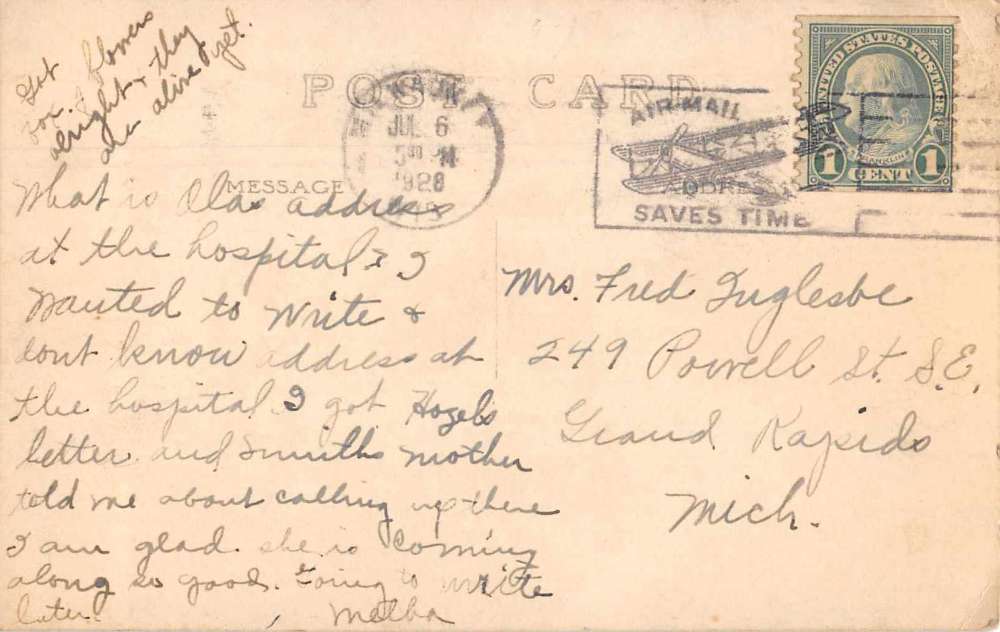 Got
box. of flowers
alright & they
are alive yet.
POST CARD
JUL 6
5 30 PM
1928
AIR MAIL
ADDRESSED
SAVES TIME
UNITED STATES POSTAGE
FRANKLIN
1 CENT 1
MESSAGE
What is Olas address
at the hospital? I
Wanted to Write &
dont know address at
the hospital I got Hazels
letter and Smiths mother
told me about calling up there
I am glad she is coming
along so good. Going to write
later.
Melba
Mrs. Fred Inglesbe
249 Powell St. S.E.
Grand Rapids
Mich.